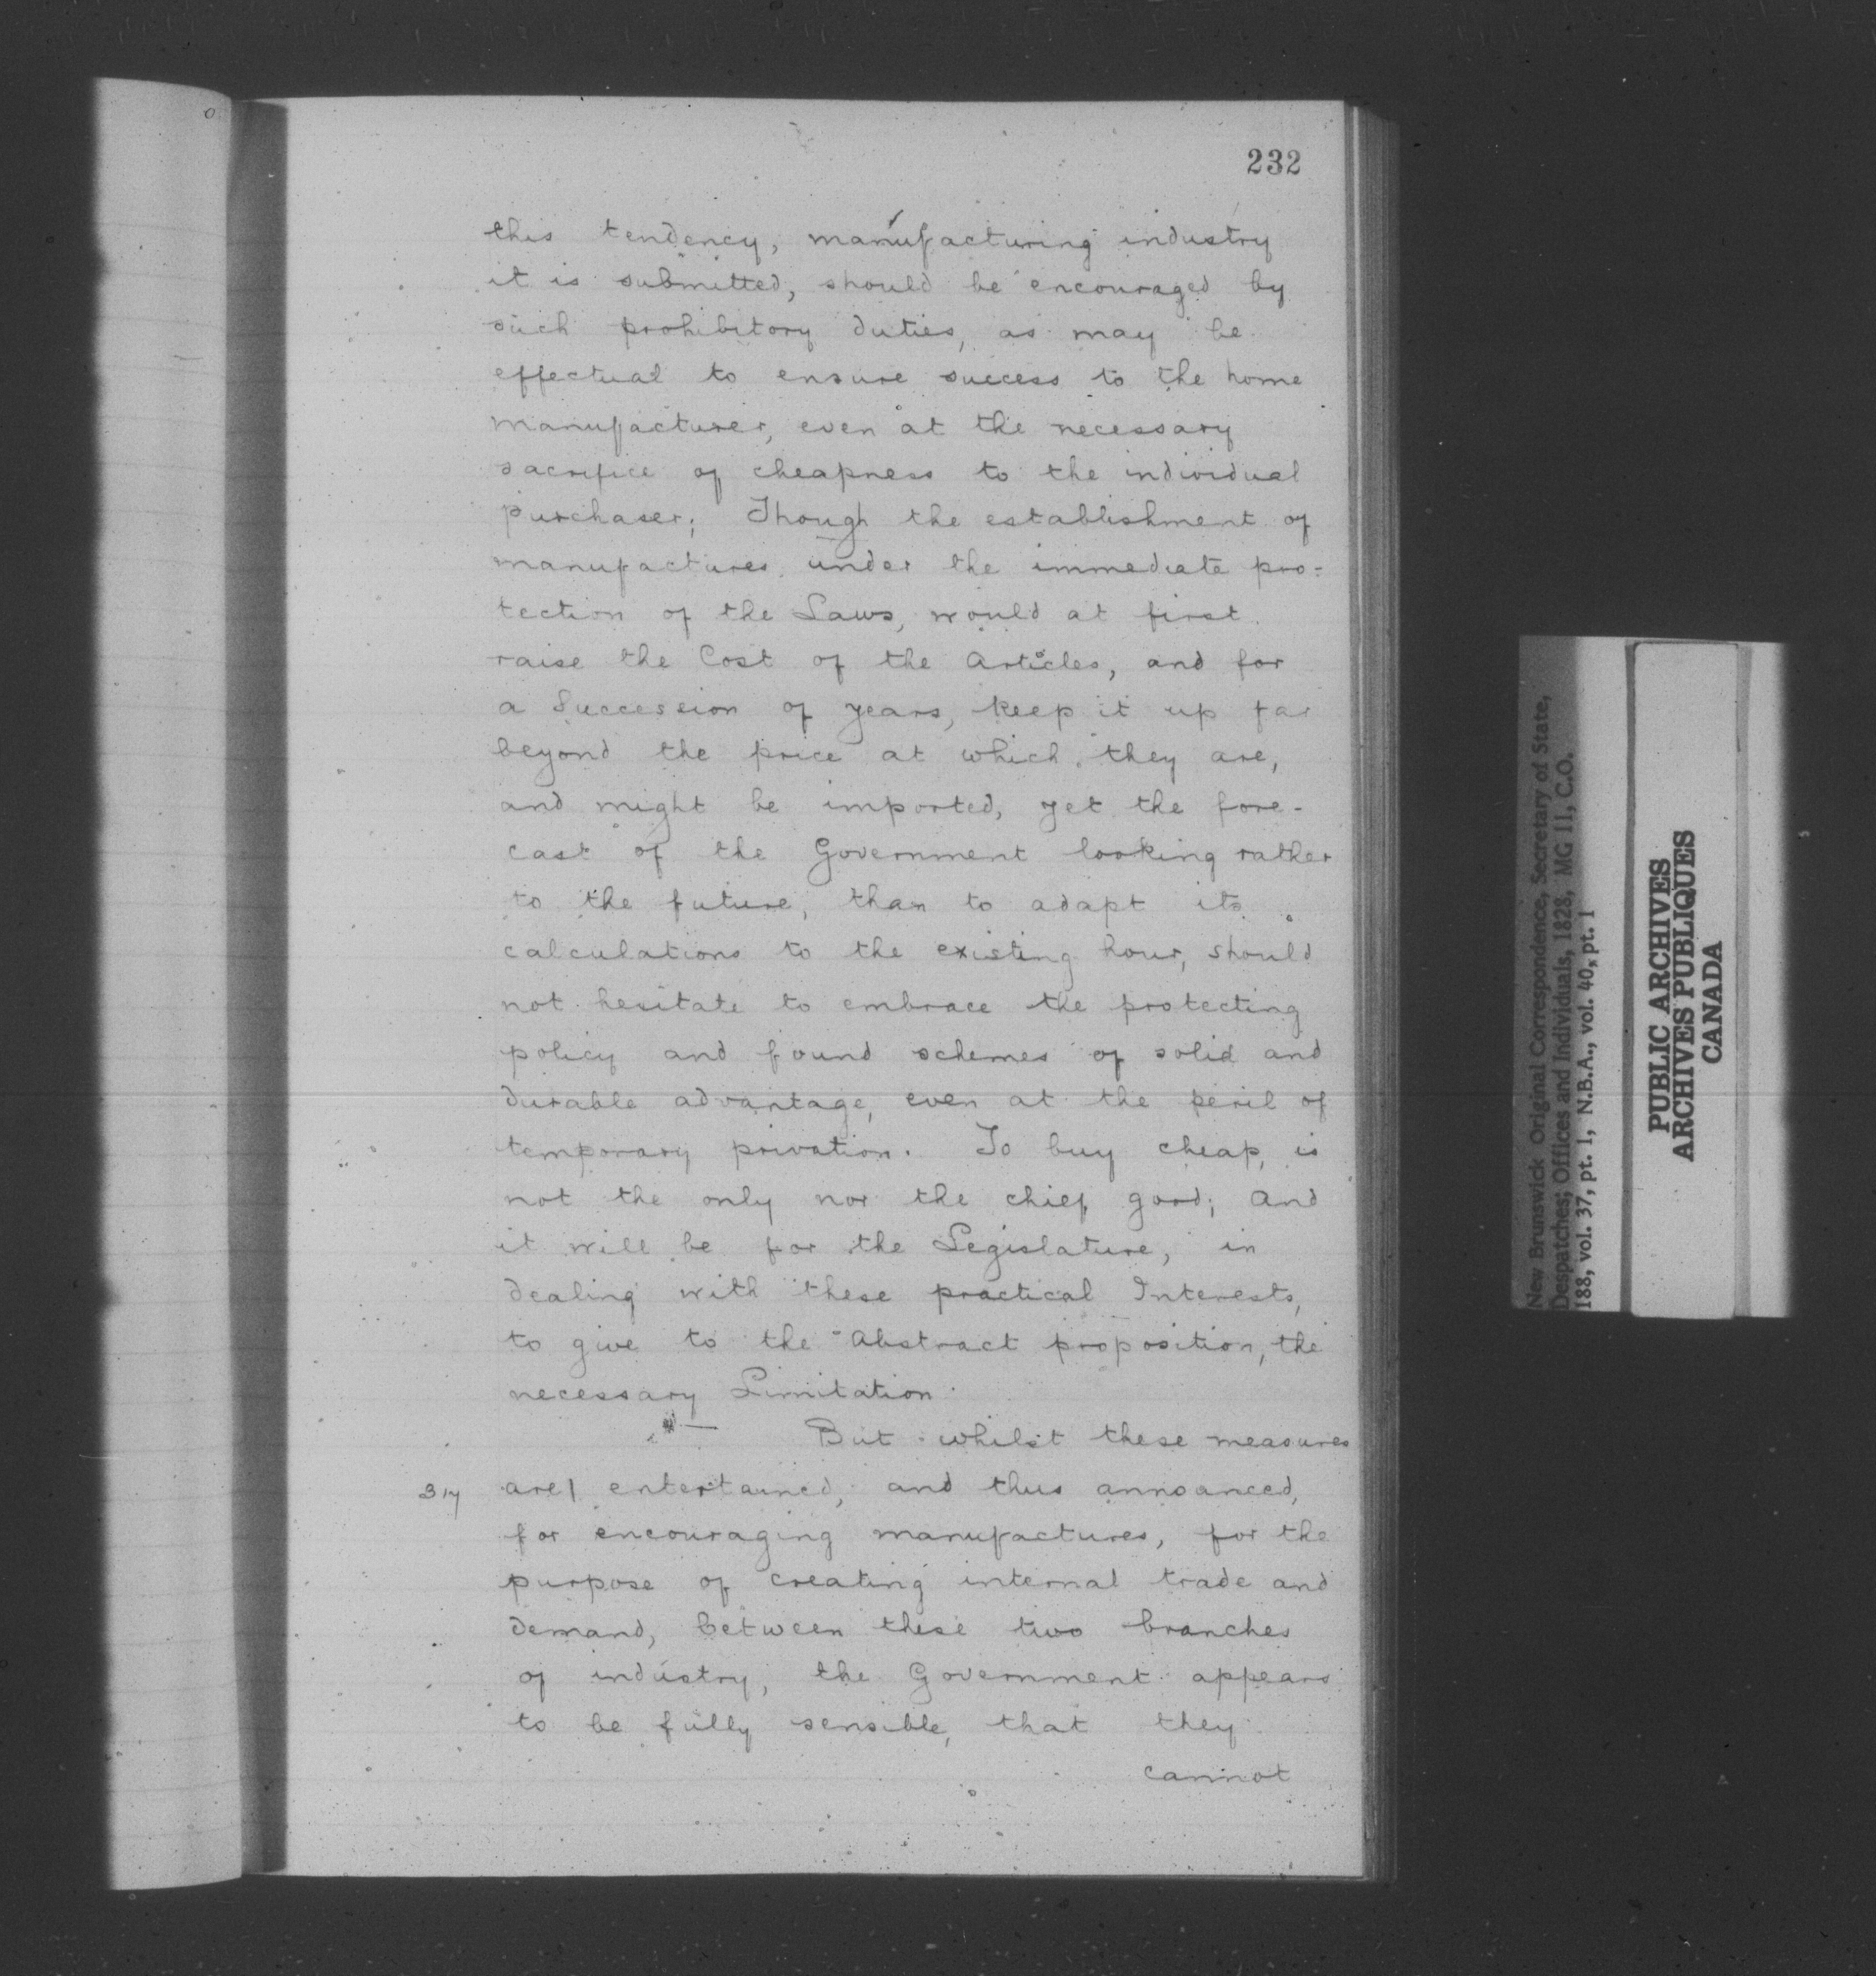 232
this tendency, manufacturing industry
it is submitted, should be encouraged by
such prohibitory duties, as may be
effectual to ensure success to the home
manufacturer, even at the necessary
sacrifice of cheapness to the individual
purchaser; Though the establishment of
manufactures under the immediate pro=
tection of the Laws, would at first
raise the Cost of the Articles, and for
a Succession of years, keep it up far
beyond the price at which they are,
and might be imported, yet the fore-
cast of the Government looking rather
to the future, than to adapt its
calculations to the existing hour, should
not hesitate to embrace the protecting
policy and found schemes of solid and
durable advantage, even at the peril of
temporary privation. To buy cheap, is
not the only nor the chief good; And
it will be for the Legislature, in
dealing with these practical Interests,
to give to the Abstract proposition, the
necessary Limitation.
But whilst these measures
317 are| entertained, and thus annoanced,
for encouraging manufactures, for the
purpose of creating internal trade and
demand, between these two branches
of industry, the Government appears
to be fully sensible, that they
cannot
New Brunswick Original Correspondence, Secretary of State,
Despatches; Offices and Individuals, 1828, MG 11, C.O.
188, vol. 37, pt. 1, N.B.A., vol. 40, pt. 1
PUBLIC ARCHIVES
ARCHIVES PUBLIQUES
CANADA